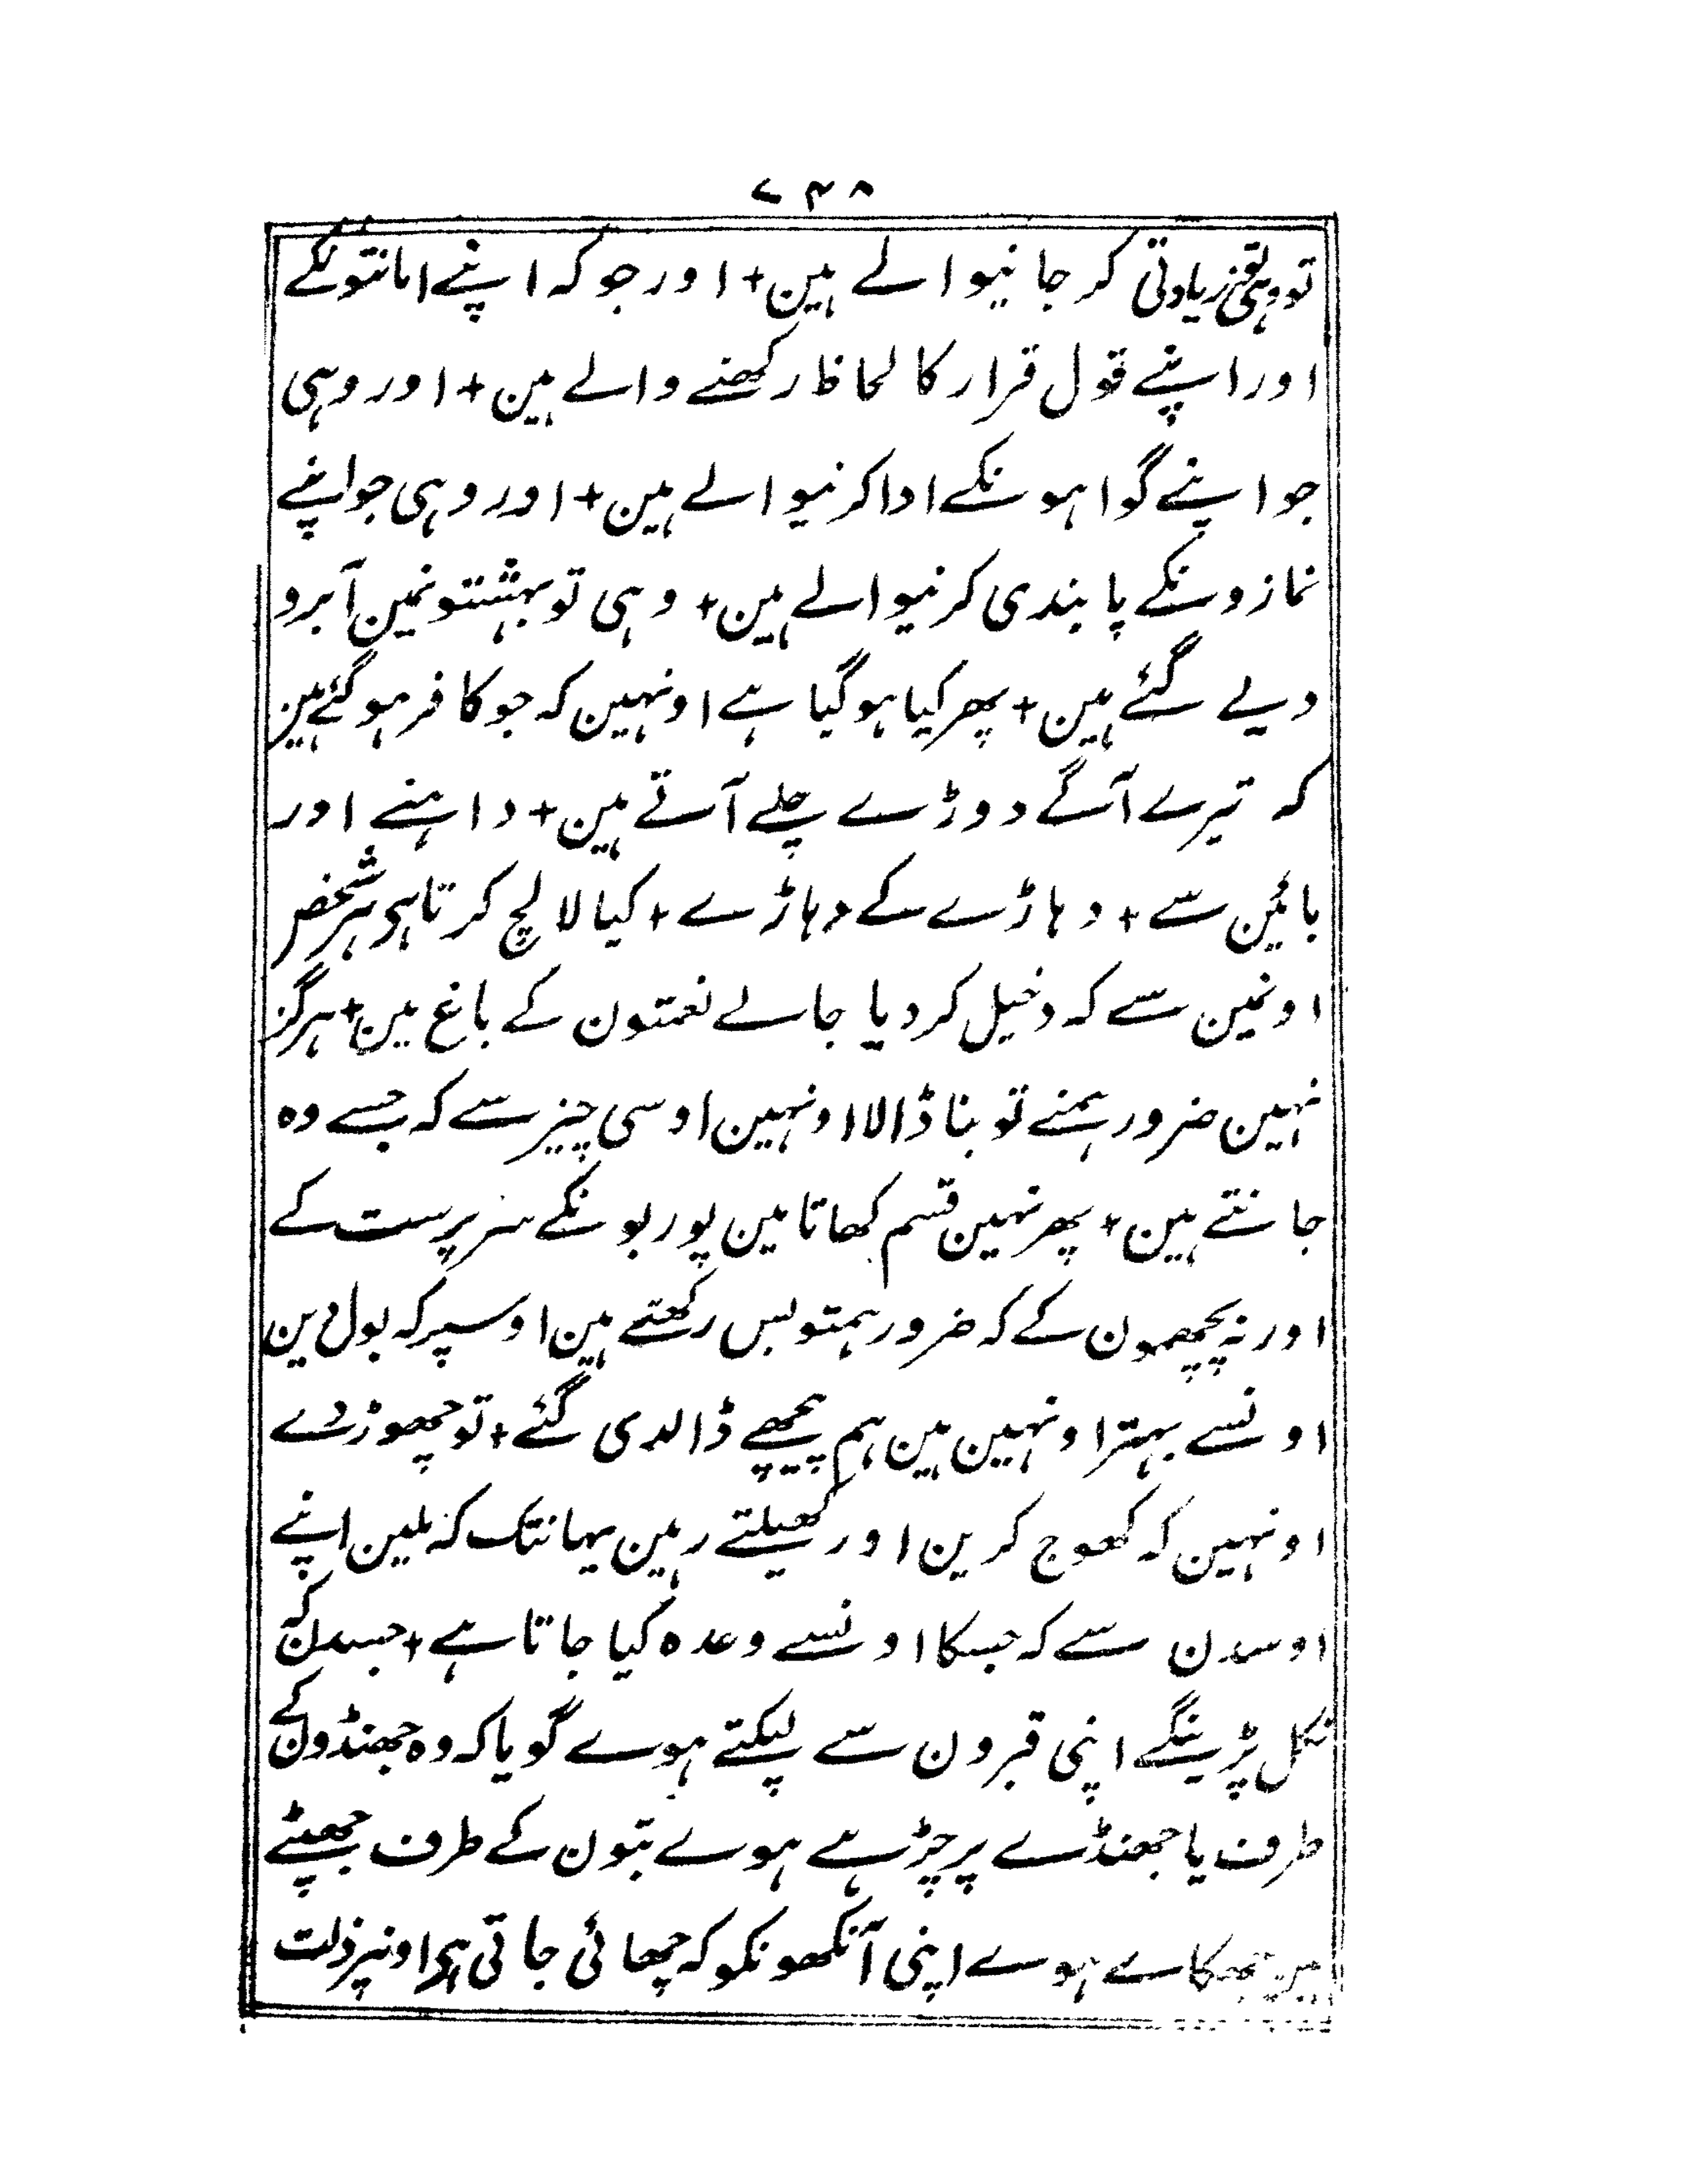 ۷۳۸
تو وہی تو زیادتی کر جانیوالے ہین + اور جو کہ اپنے امانتونکے
اور اپنے قول قرار کا لحاظ رکھنے والے ہین + اور وہی
جو اپنے گواہونکے ادا کرنیوالے ہین + اور وہی جو اپنے
نمازونکے پابندی کرنیوالے ہین + وہی تو بہشتونمین آبرو
دیے گئے ہین + پھر کیا ہو گیا ہے اونہین کہ جو کافر ہو گئے ہین
کہ تیرے آگے دوڑے چلے آتے ہین + داہنے اور
بائین سے + دہاڑے کے دہاڑے + کیا لالچ کرتا ہی ہر شخص
اونمین سے کہ دخیل کر دیا جالے نعمتون کے باغ مین + ہرگز
نہین ضرور ہمنے تو بنا ڈالا اونہین اوسی چیز سے کہ جسے وہ
جانتے ہین + پھر نہین قسم کھاتا مین پوربونکے سرپرست کے
اور نہ پچھمون کے کہ ضرور ہمتو بس رکھتے ہین اوسپر کہ بول دین
اونسے بہتر اونہین مین ہم پیچھے ڈالدی گئے + تو چھوڑ دے
اونہین کہ کھوج کرین اور کھیلتے رہین یہانتک کہ ملین اپنے
اوسدن سے کہ جسکا اونسے وعدہ کیا جاتا ہے + جسدن کہ
نکل پڑینگے اپنی قبرون سے لپکتے ہوے گویا کہ وہ جھنڈون کے
طرف یا جھنڈے پر چڑہے ہوے بتون کے طرف جھپٹے
ہین جھکاے ہوے اپنی آنکھونکو کہ چھائی جاتی ہی اونپر ذلت